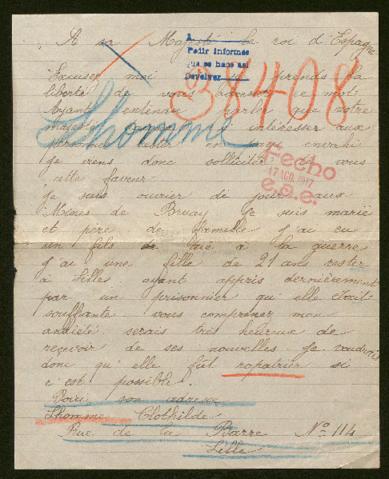 A sa Majesté le roi d'Espagne
A
Pedir informes
que se hace así
38408
Excuser moi si je prends la
liberté de vous adresser ce mot
Ayant entendu parler que votre
majesté s'intéresser aux
personnes en pays envahi
Lhomme
je viens donc solliciter à vous
cette faveur
Fecho
17 AGO. 1917
e.s.e.
Je suis ouvrier de jour aux
Mines de Bruay je suis marié
et père de famille j'ai eu
un fils de tué à la guerre
j'ai une fille de 21 ans restée
à Lille ayant appris dernièrement
par un prisonnier qu'elle était
souffrante vous comprenez mon
anxiété serais très heureux de
recevoir de ses nouvelles je voudrais
donc qu'elle fût rapatrier si
c'est possible.
Voici son adresse
Lhomme Clothilde
Rue de la Barre N° 114
Lille